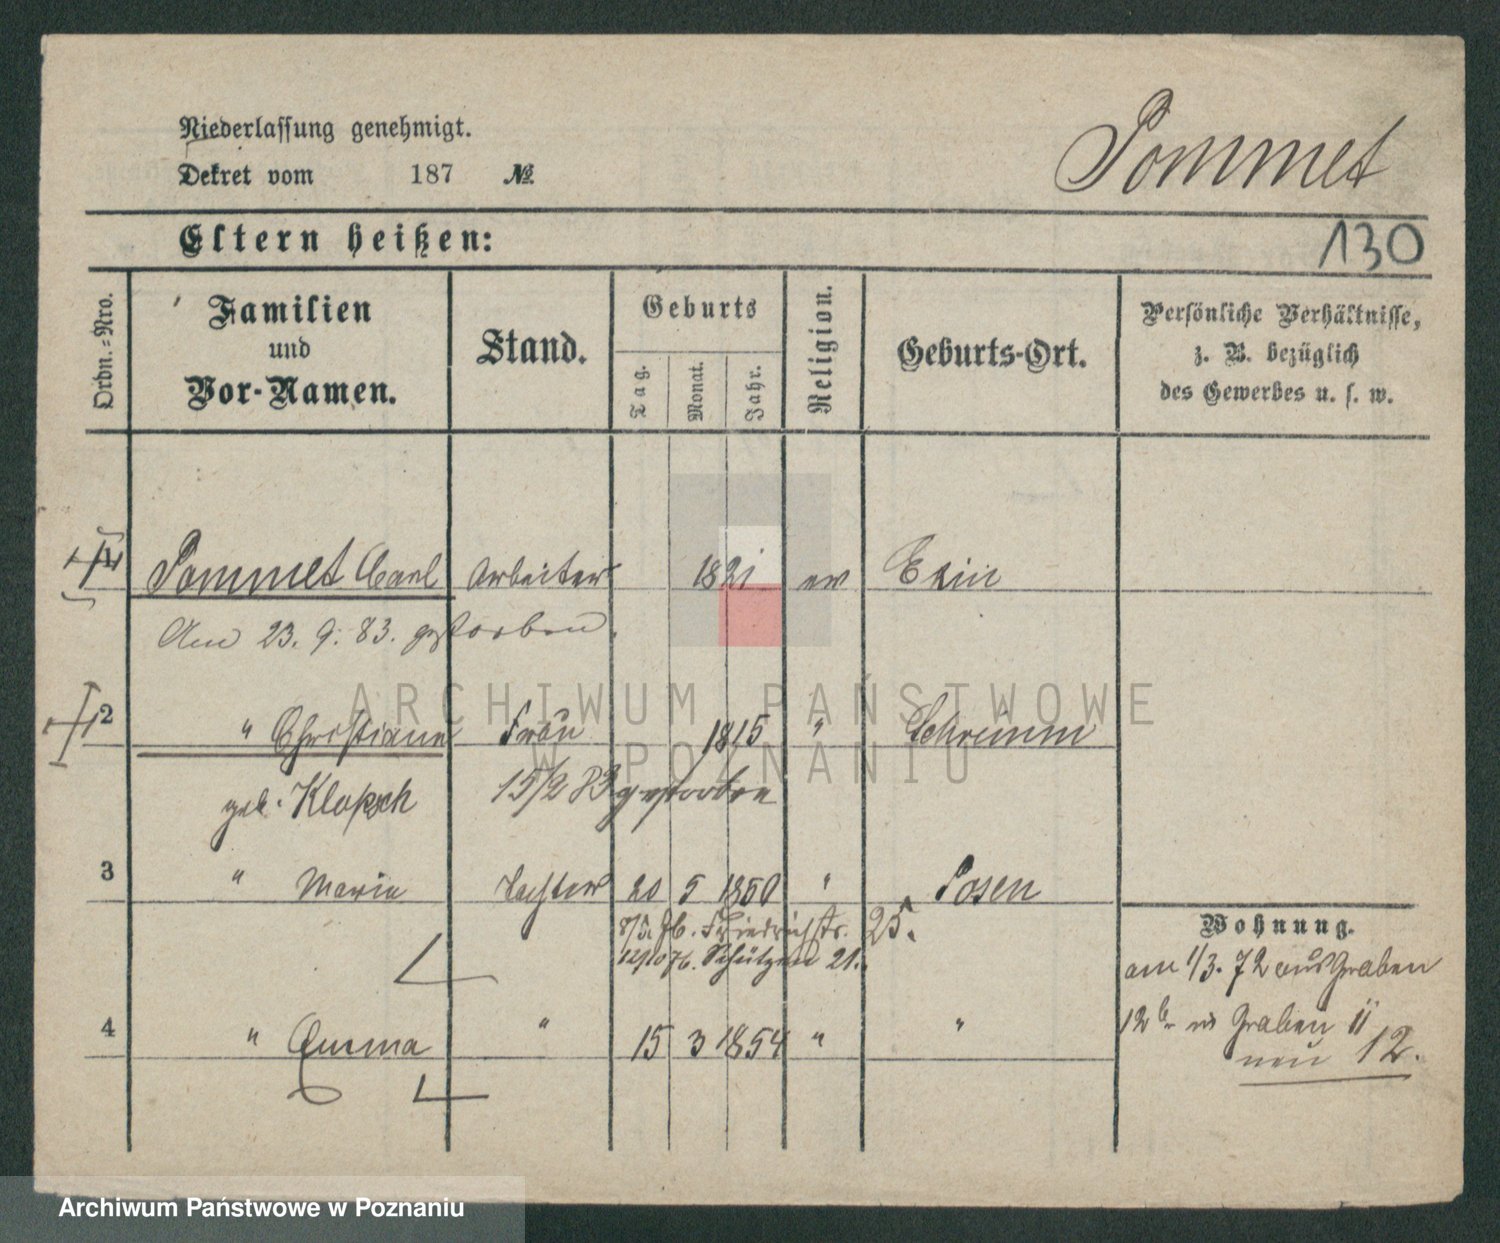 Niederlassung genehmigt.
Pommet
Dekret vom 187 №
Eltern heißen:
130
Ordn.-Nro.
Familien
und
Vor-Namen.
Stand.
Geburts
Tag.
Monat.
Jahr.
Religion.
Geburts-Ort.
Persönliche Verhältnisse,
z. B. bezüglich
des Gewerbes u. s. w.
1 Pommet Carl Arbeiter 1821 ev Exin
Am 23. 9. 83. gestorben.
2 " Christiane Frau 1815 " Schrimm
geb. Klopsch 15/2 83 gestorben
3 " Marie Tochter 20 5 1850 " Posen
8/5. Friedrichstr. 25.
12/10 76. Schützen 21.
Wohnung.
am 1/3. 72 aus Graben
4 " Emma " 15 3 1854 " "
12 b. Graben
neu 12.
ARCHIWUM PAŃSTWOWE
W POZNANIU
Archiwum Państwowe w Poznaniu